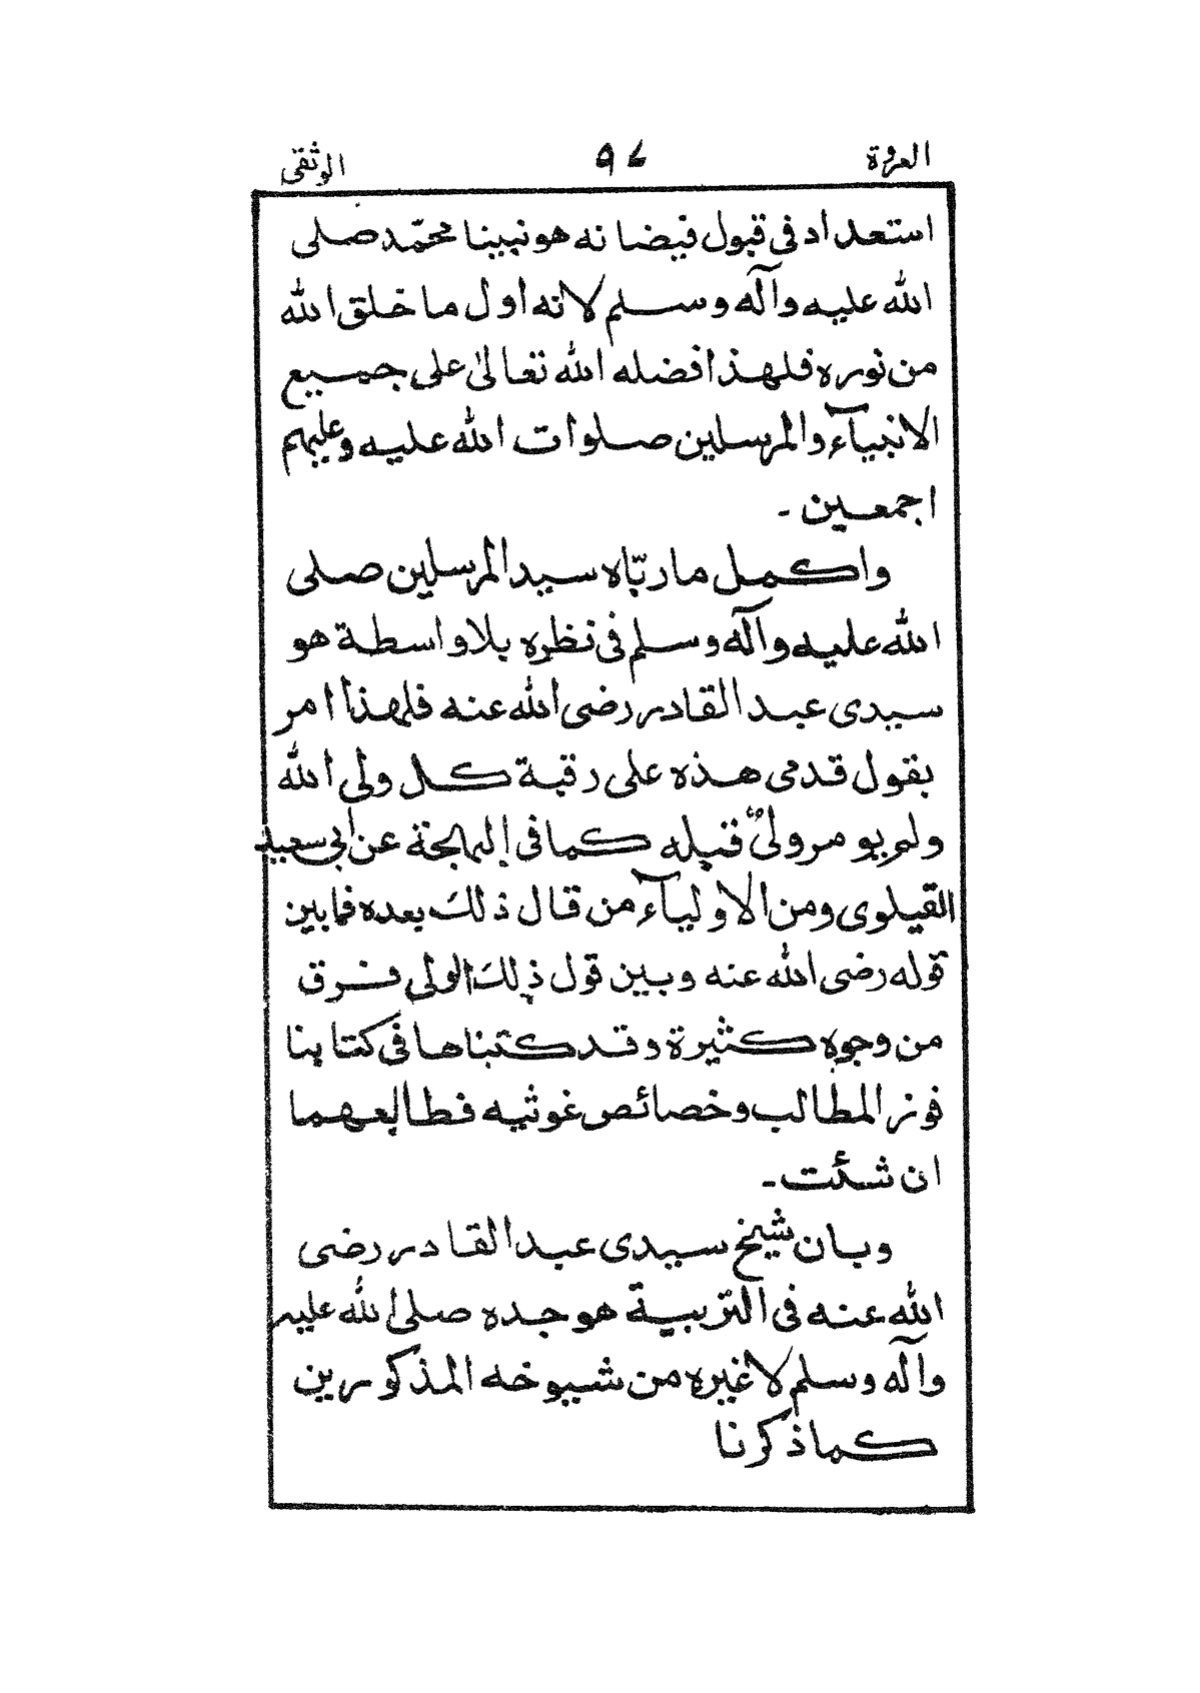 العروة ۹۷ الوثقى
استعداد فى قبول فيضانه هو نبينا محمّد صلى
الله عليه وآله وسلم لانه اول ما خلق الله
من نوره فلهذا فضله الله تعالىٰ على جميع
الانبيآء والمرسلين صلوات الله عليه وعليهم
اجمعين۔
واكمل ما ربّاه سيد المرسلين صلى
الله عليه وآله وسلم فى نظره بلا واسطة هو
سيدى عبد القادر رضى الله عنه فلهذا امر
بقول قدمى هذه على رقبة كل ولى الله
ولم يومر ولىٌ قبله كما فى البهجة عن ابى سعيد
القيلوى ومن الاوليآء من قال ذلك بعده فما بين
قوله رضى الله عنه وبين قول ذلك الولى فرق
من وجوه كثيرة وقد كتبناها فى كتابنا
فوز المطالب وخصائص غوثيه فطالعهما
ان شئت۔
وبان شيخ سيدى عبد القادر رضى
الله عنه فى التربية هو جده صلى الله عليه
وآله وسلم لا غيره من شيوخه المذكورين
كما ذكرنا